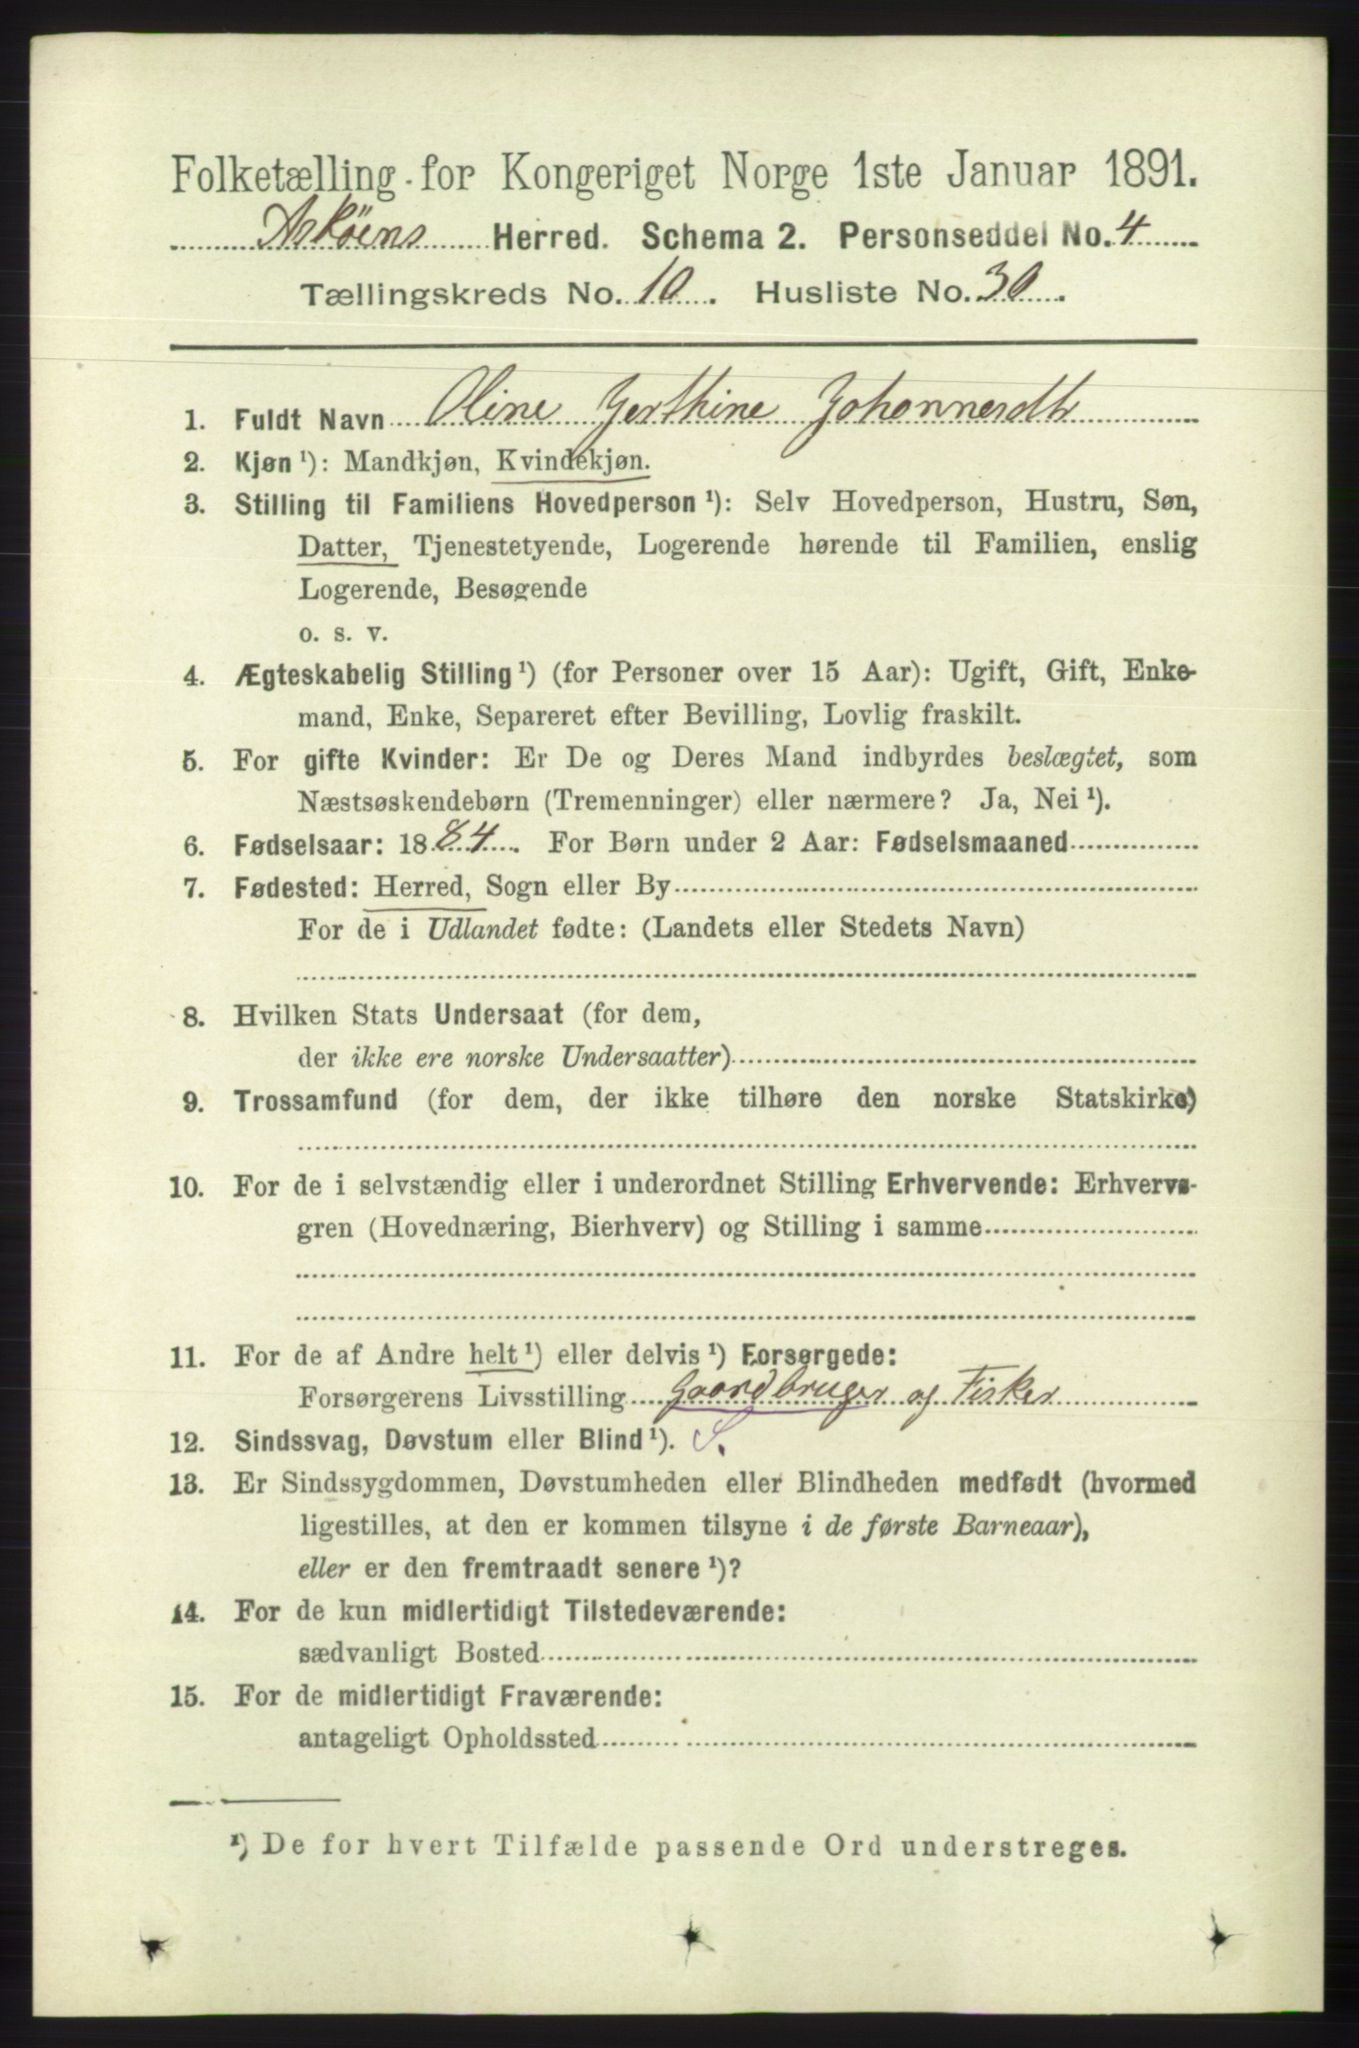 Folketælling for Kongeriget Norge 1ste Januar 1891.
Askøens Herred. Schema 2. Personseddel No. 4
Tællingskreds No. 10. Husliste No. 30.
1. Fuldt Navn Oline Jerthine Johannesdtr
2. Kjøn ¹): Mandkjøn, Kvindekjøn.
3. Stilling til Familiens Hovedperson ¹): Selv Hovedperson, Hustru, Søn,
Datter, Tjenestetyende, Logerende hørende til Familien, enslig
Logerende, Besøgende
o. s. v.
4. Ægteskabelig Stilling ¹) (for Personer over 15 Aar): Ugift, Gift, Enke-
mand, Enke, Separeret efter Bevilling, Lovlig fraskilt.
5. For gifte Kvinder: Er De og Deres Mand indbyrdes beslægtet, som
Næstsøskendebørn (Tremenninger) eller nærmere? Ja, Nei ¹).
6. Fødselsaar: 1884. For Børn under 2 Aar: Fødselsmaaned
7. Fødested: Herred, Sogn eller By
For de i Udlandet fødte: (Landets eller Stedets Navn)
8. Hvilken Stats Undersaat (for dem,
der ikke ere norske Undersaatter)
9. Trossamfund (for dem, der ikke tilhøre den norske Statskirke)
10. For de i selvstændig eller i underordnet Stilling Erhvervende: Erhvervs-
gren (Hovednæring, Bierhverv) og Stilling i samme
11. For de af Andre helt ¹) eller delvis ¹) Forsørgede:
Forsørgerens Livsstilling Gaardbruger og Fisker
12. Sindssvag, Døvstum eller Blind ¹). S.
13. Er Sindssygdommen, Døvstumheden eller Blindheden medfødt (hvormed
ligestilles, at den er kommen tilsyne i de første Barneaar),
eller er den fremtraadt senere ¹)?
14. For de kun midlertidigt Tilstedeværende:
sædvanligt Bosted
15. For de midlertidigt Fraværende:
antageligt Opholdssted
¹) De for hvert Tilfælde passende Ord understreges.